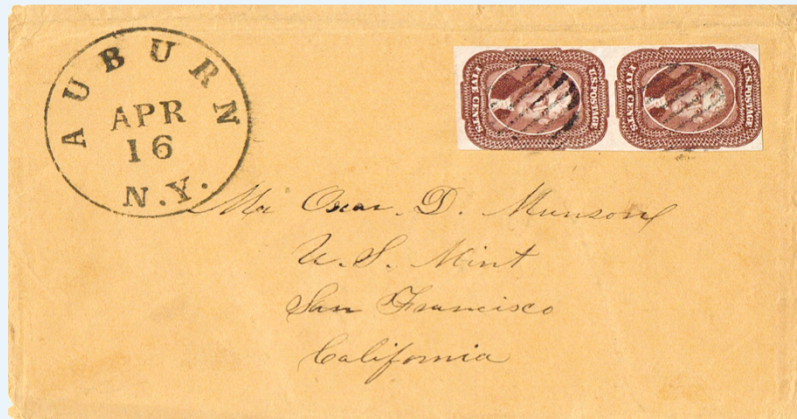 AUBURN
APR
16
N.Y.
U.S.POSTAGE
FIVE CENTS
U.S.POSTAGE
FIVE CENTS
Mr Oscar. D. Munson
U. S. Mint
San Francisco
California